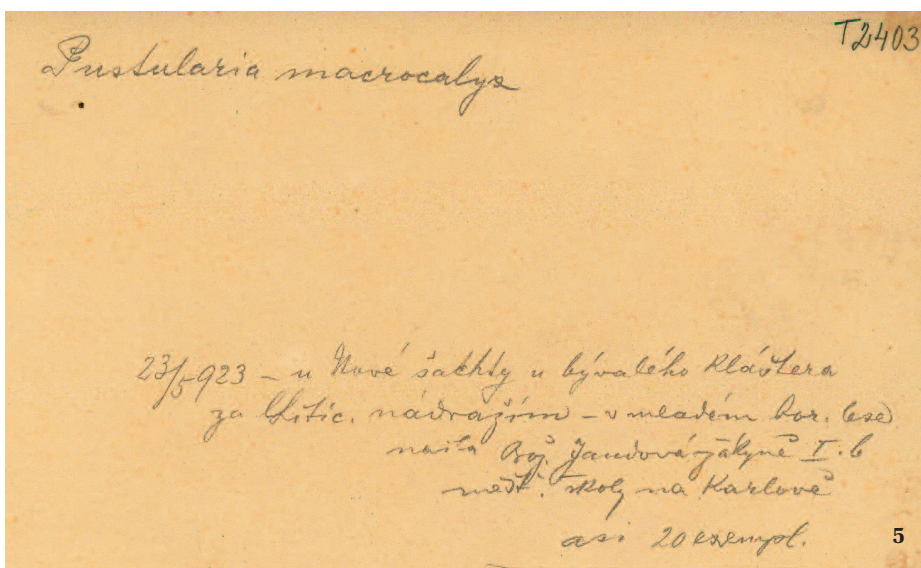 T2403
Pustularia macrocalyx
23/5 923 – u Nové šachty u bývalého kláštera
za Litic. nádražím – v mladém bor. lese
našla Boj. Jandová žákyně I. b
měšť. školy na Karlově
asi 20 exempl.
5